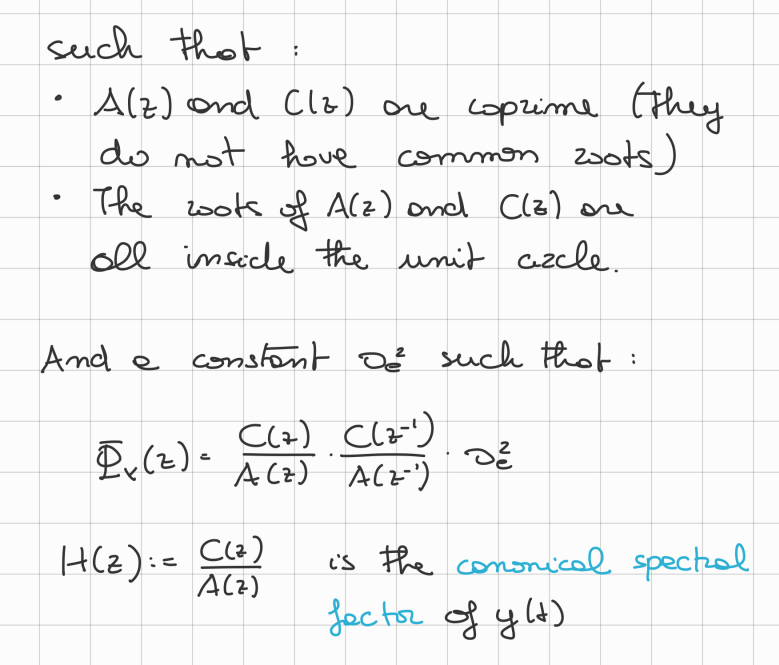 such that :
• A(z) and C(z) are coprime (they
do not have common roots)
• The roots of A(z) and C(z) are
all inside the unit circle.
And a constant σe² such that :
Φᵧ(z) = C(z)/A(z) · C(z⁻¹)/A(z⁻¹) · σe²
H(z) := C(z)/A(z) is the canonical spectral
factor of y(t)